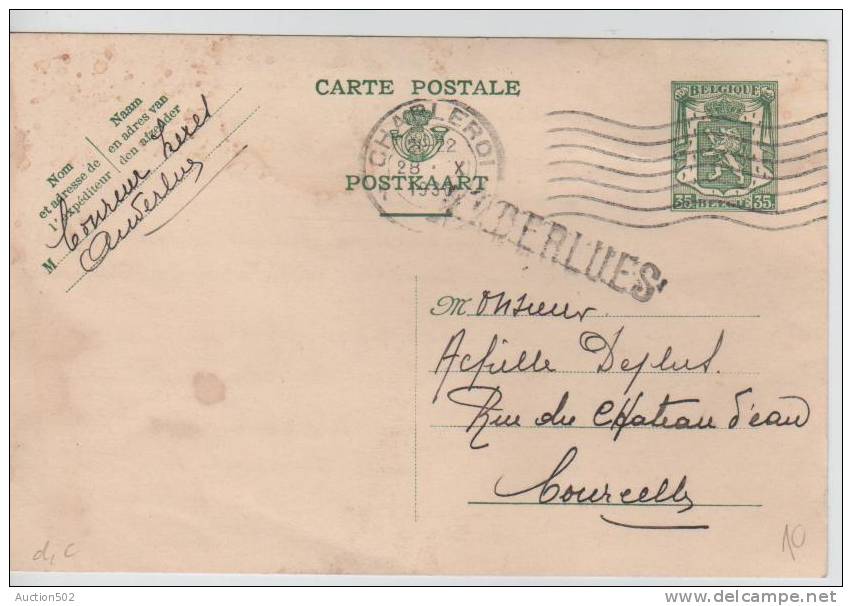 CARTE POSTALE
POSTKAART
Nom
et adresse de
l'expéditeur
Naam
en adres van
den afzender
M
Anderlues
CHARLEROI
22
28 · X
193
BELGIQUE
35 BELGIE 35
ANDERLUES
Monsieur
Achille Deplus.
Rue du Chateau d'eau
Courcelles
d, c
10
Auction502
delcampe.net